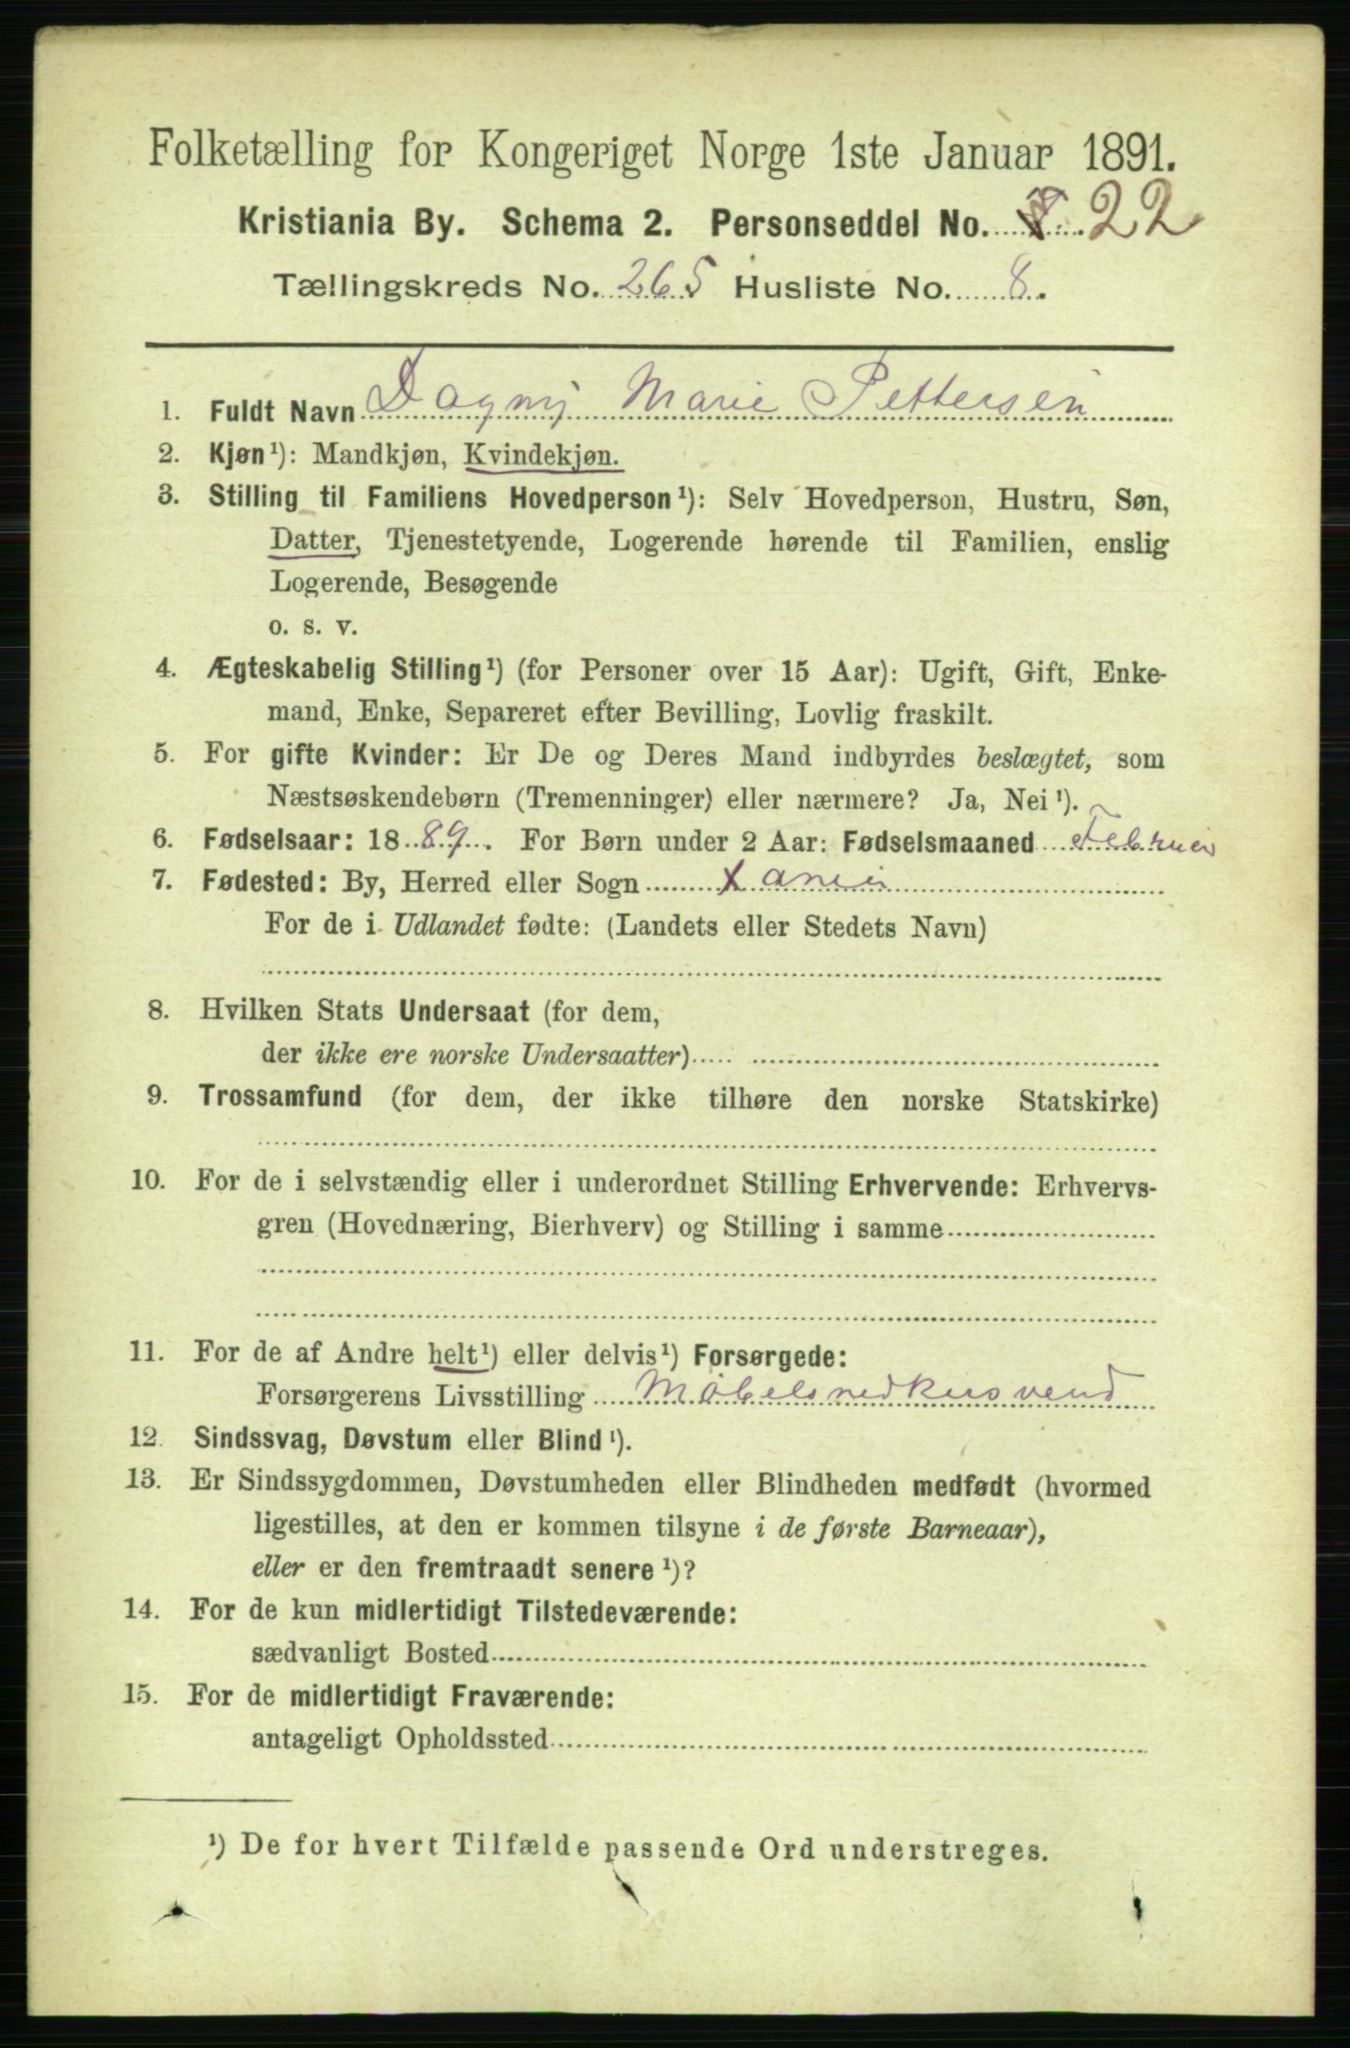 Folketælling for Kongeriget Norge 1ste Januar 1891.
Kristiania By. Schema 2. Personseddel No. 22
Tællingskreds No. 265 Husliste No. 8.
1. Fuldt Navn Dagny Marie Pettersen
2. Kjøn¹): Mandkjøn, Kvindekjøn.
3. Stilling til Familiens Hovedperson¹): Selv Hovedperson, Hustru, Søn,
Datter, Tjenestetyende, Logerende hørende til Familien, enslig
Logerende, Besøgende
o. s. v.
4. Ægteskabelig Stilling¹) (for Personer over 15 Aar): Ugift, Gift, Enke-
mand, Enke, Separeret efter Bevilling, Lovlig fraskilt.
5. For gifte Kvinder: Er De og Deres Mand indbyrdes beslægtet, som
Næstsøskendebørn (Tremenninger) eller nærmere? Ja, Nei¹).
6. Fødselsaar: 1889. For Børn under 2 Aar: Fødselsmaaned Februer
7. Fødested: By, Herred eller Sogn
For de i Udlandet fødte: (Landets eller Stedets Navn)
8. Hvilken Stats Undersaat (for dem,
der ikke ere norske Undersaatter)
9. Trossamfund (for dem, der ikke tilhøre den norske Statskirke)
10. For de i selvstændig eller i underordnet Stilling Erhvervende: Erhvervs-
gren (Hovednæring, Bierhverv) og Stilling i samme
11. For de af Andre helt¹) eller delvis¹) Forsørgede:
Forsørgerens Livsstilling Møbelsnedkersvend
12. Sindssvag, Døvstum eller Blind¹).
13. Er Sindssygdommen, Døvstumheden eller Blindheden medfødt (hvormed
ligestilles, at den er kommen tilsyne i de første Barneaar),
eller er den fremtraadt senere¹)?
14. For de kun midlertidigt Tilstedeværende:
sædvanligt Bosted
15. For de midlertidigt Fraværende:
antageligt Opholdssted
¹) De for hvert Tilfælde passende Ord understreges.